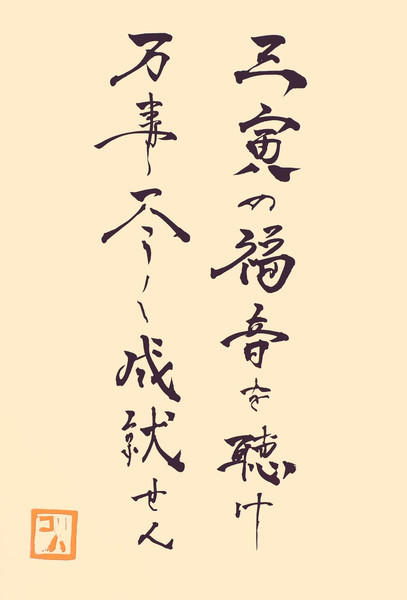 三寅の福音を聴け
万事尽く成就せん
コハ